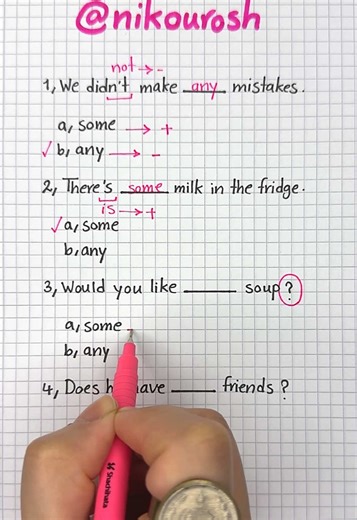 @nikourosh
not → -
1, We didn't make any mistakes.
a, some → +
✓ b, any → -
2, There's some milk in the fridge.
is → +
✓ a, some
b, any
3, Would you like ______ soup?
a, some
b, any
4, Does h have ____ friends?
Snachihata